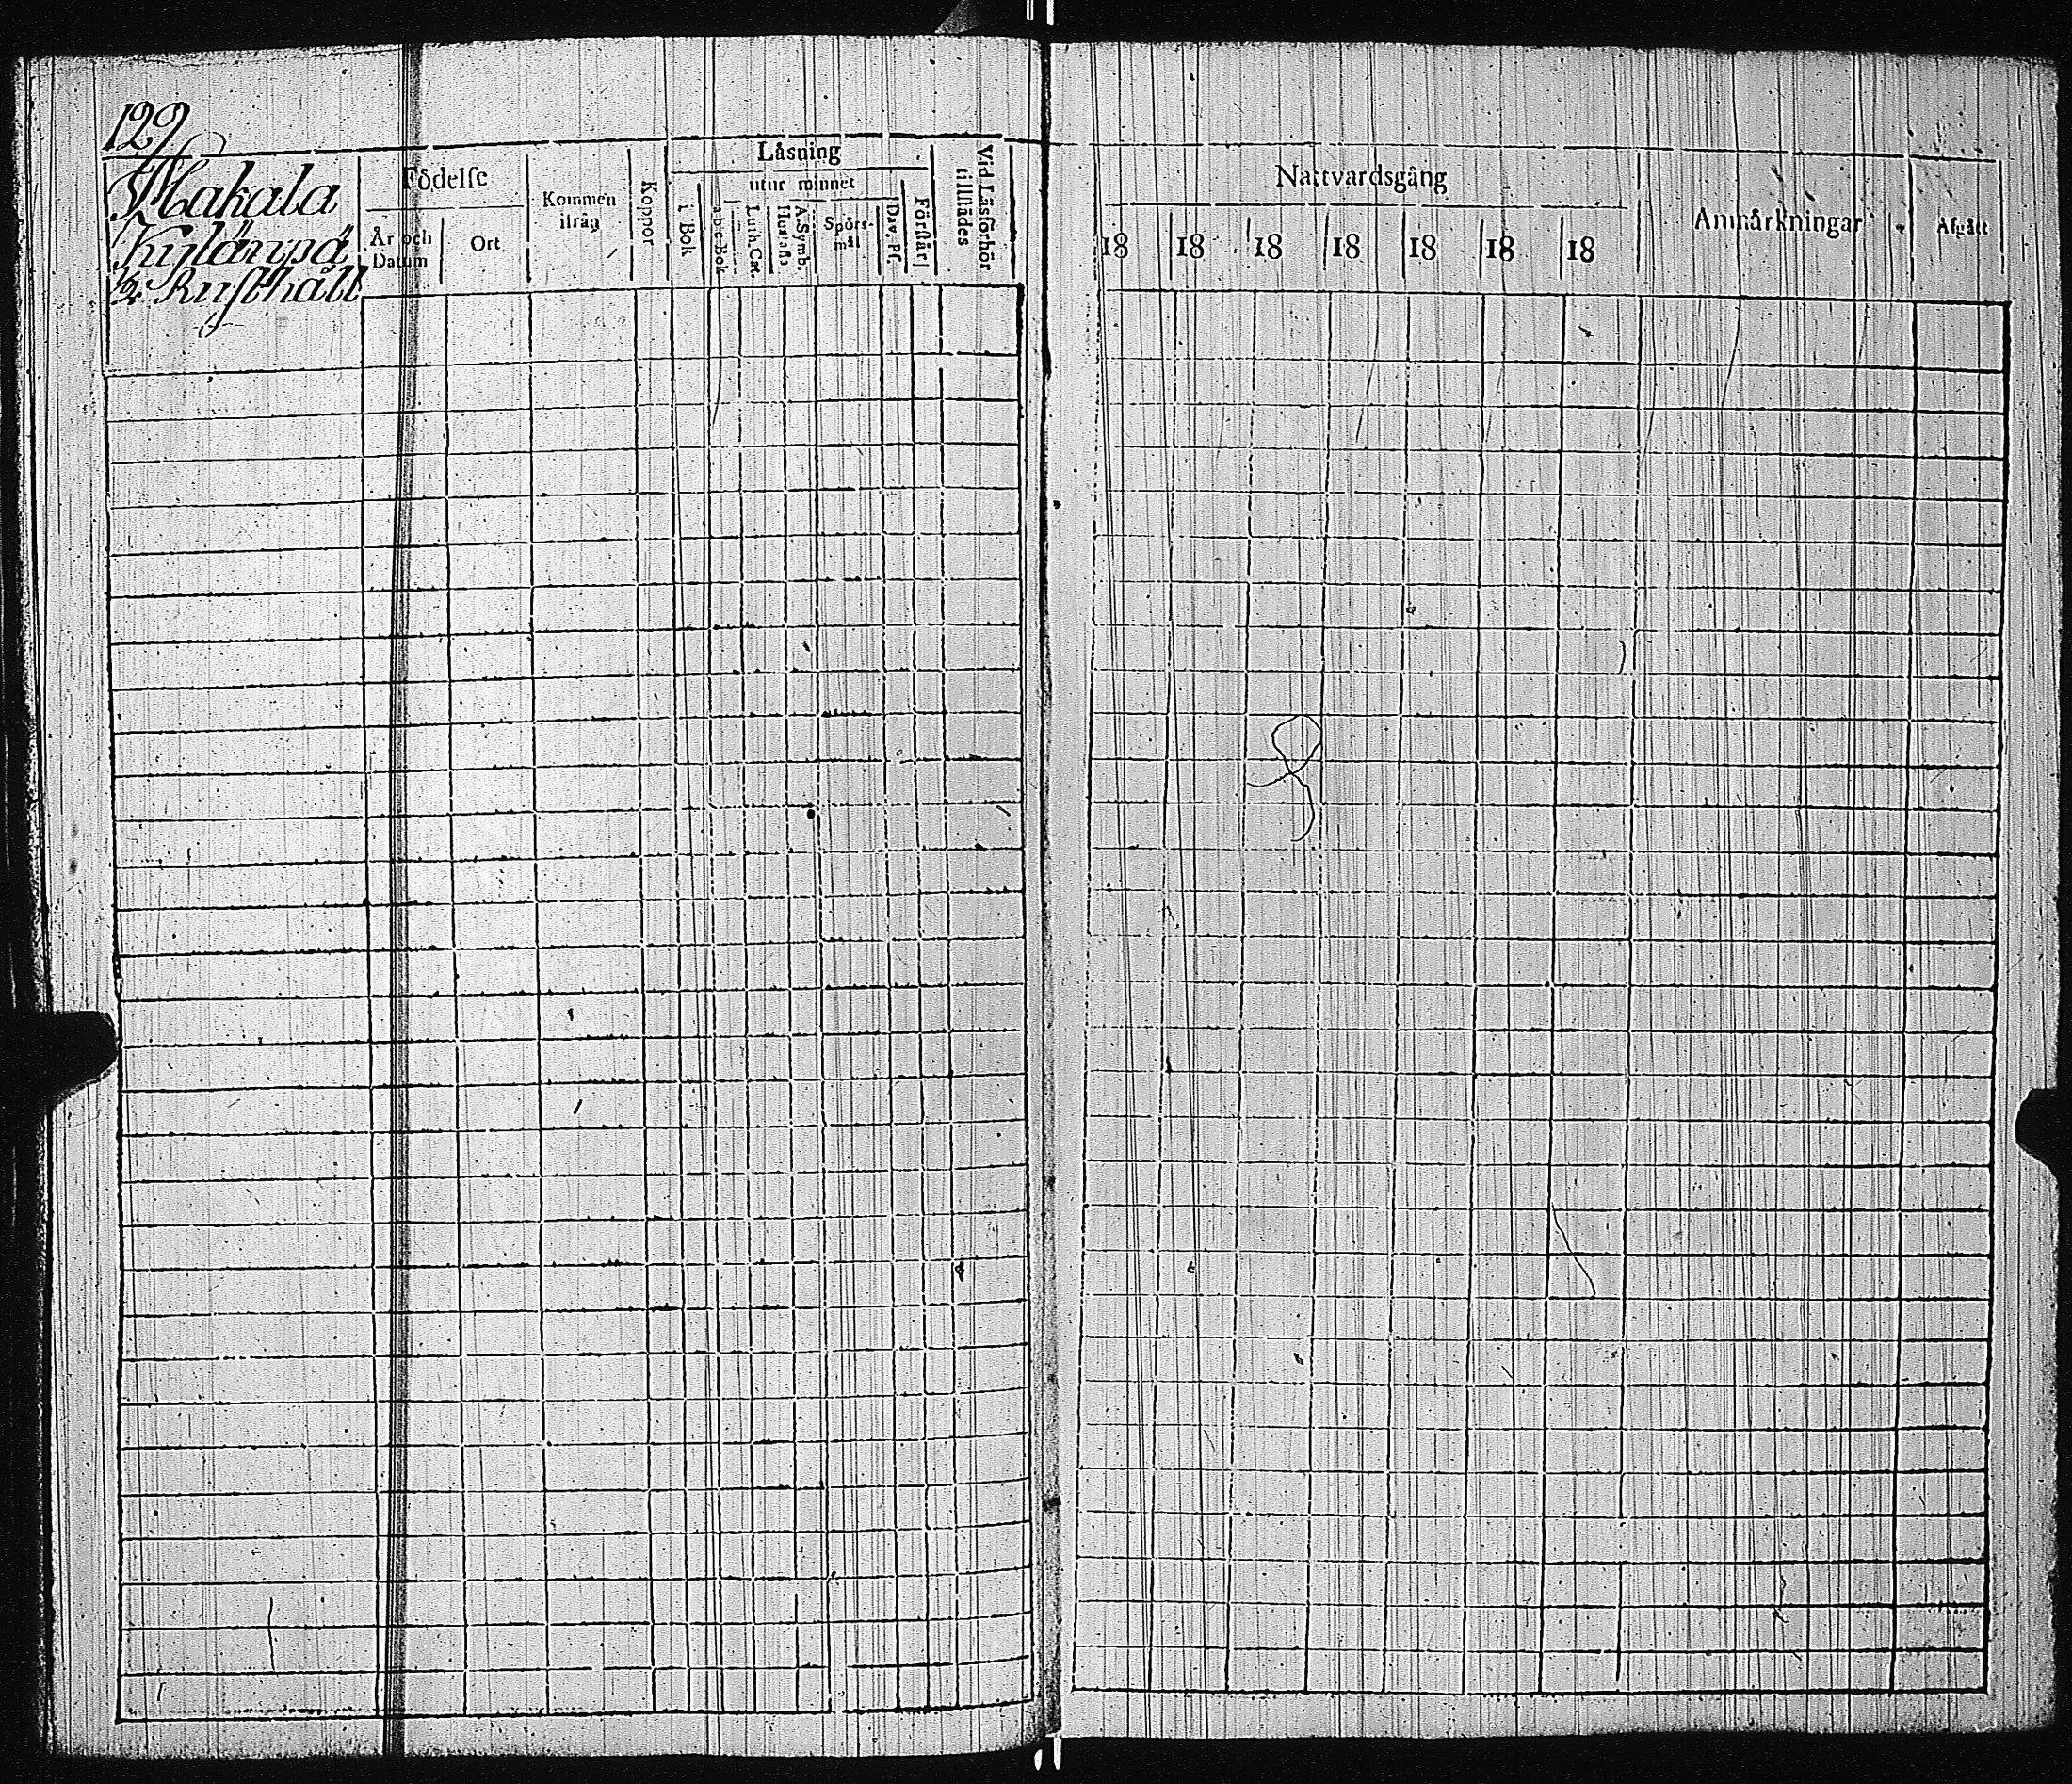 129
Makala
Kylänpä
1/2 Rusthåll
Födelse
År och Datum
Ort
Kommen ifrån
Koppor
Läsning
i Bok
utur minnet
a-b-c-Bok
Luth. Cat.
Hustafl.
A. Symb.
Spörsmål
Dav. Ps.
Förstår
Vid Läsförhör tillstädes
Nattvardsgång
18 18 18 18 18 18 18
Anmärkningar
Afgått